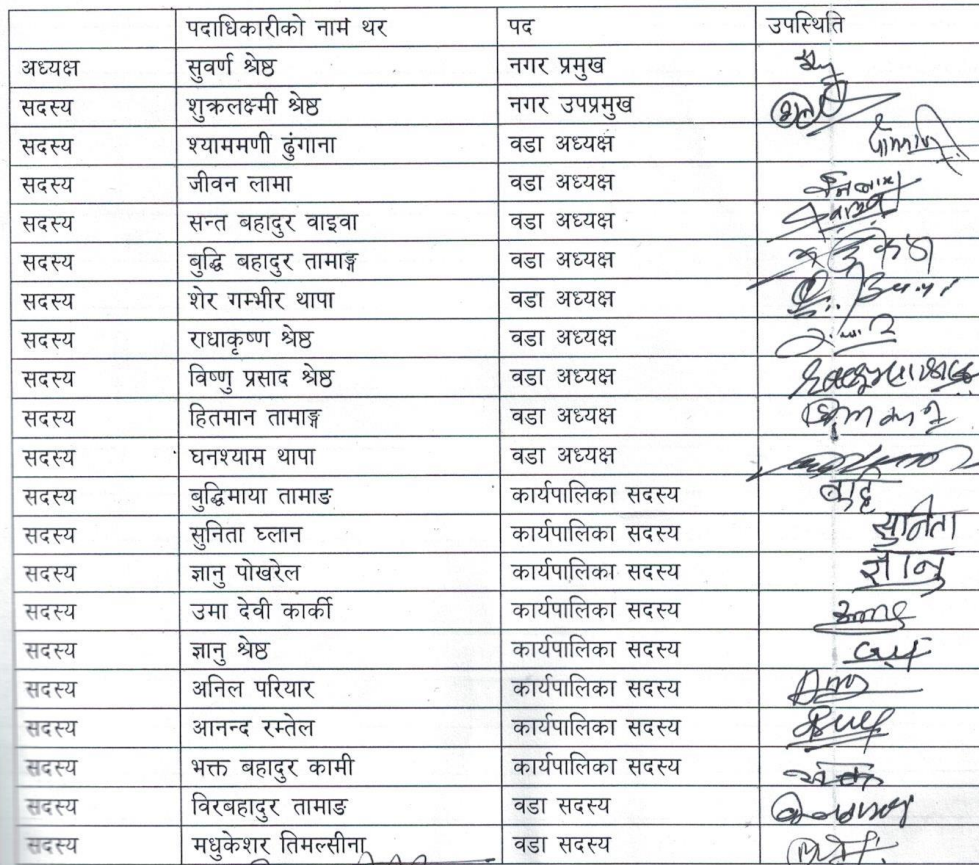 पदाधिकारीको नाम थर पद उपस्थिति
अध्यक्ष सुवर्ण श्रेष्ठ नगर प्रमुख
सदस्य शुक्रलक्ष्मी श्रेष्ठ नगर उपप्रमुख
सदस्य श्याममणी ढुंगाना वडा अध्यक्ष
सदस्य जीवन लामा वडा अध्यक्ष
सदस्य सन्त बहादुर वाइवा वडा अध्यक्ष
सदस्य बुद्धि बहादुर तामाङ्ग वडा अध्यक्ष
सदस्य शेर गम्भीर थापा वडा अध्यक्ष
सदस्य राधाकृष्ण श्रेष्ठ वडा अध्यक्ष
सदस्य विष्णु प्रसाद श्रेष्ठ वडा अध्यक्ष
सदस्य हितमान तामाङ्ग वडा अध्यक्ष
सदस्य घनश्याम थापा वडा अध्यक्ष
सदस्य बुद्धिमाया तामाङ कार्यपालिका सदस्य
सदस्य सुनिता घ्लान कार्यपालिका सदस्य सुनिता
सदस्य ज्ञानु पोखरेल कार्यपालिका सदस्य ज्ञानु
सदस्य उमा देवी कार्की कार्यपालिका सदस्य
सदस्य ज्ञानु श्रेष्ठ कार्यपालिका सदस्य
सदस्य अनिल परियार कार्यपालिका सदस्य
सदस्य आनन्द रम्तेल कार्यपालिका सदस्य
सदस्य भक्त बहादुर कामी कार्यपालिका सदस्य
सदस्य विरबहादुर तामाङ वडा सदस्य
सदस्य मधुकेशर तिमल्सीना वडा सदस्य